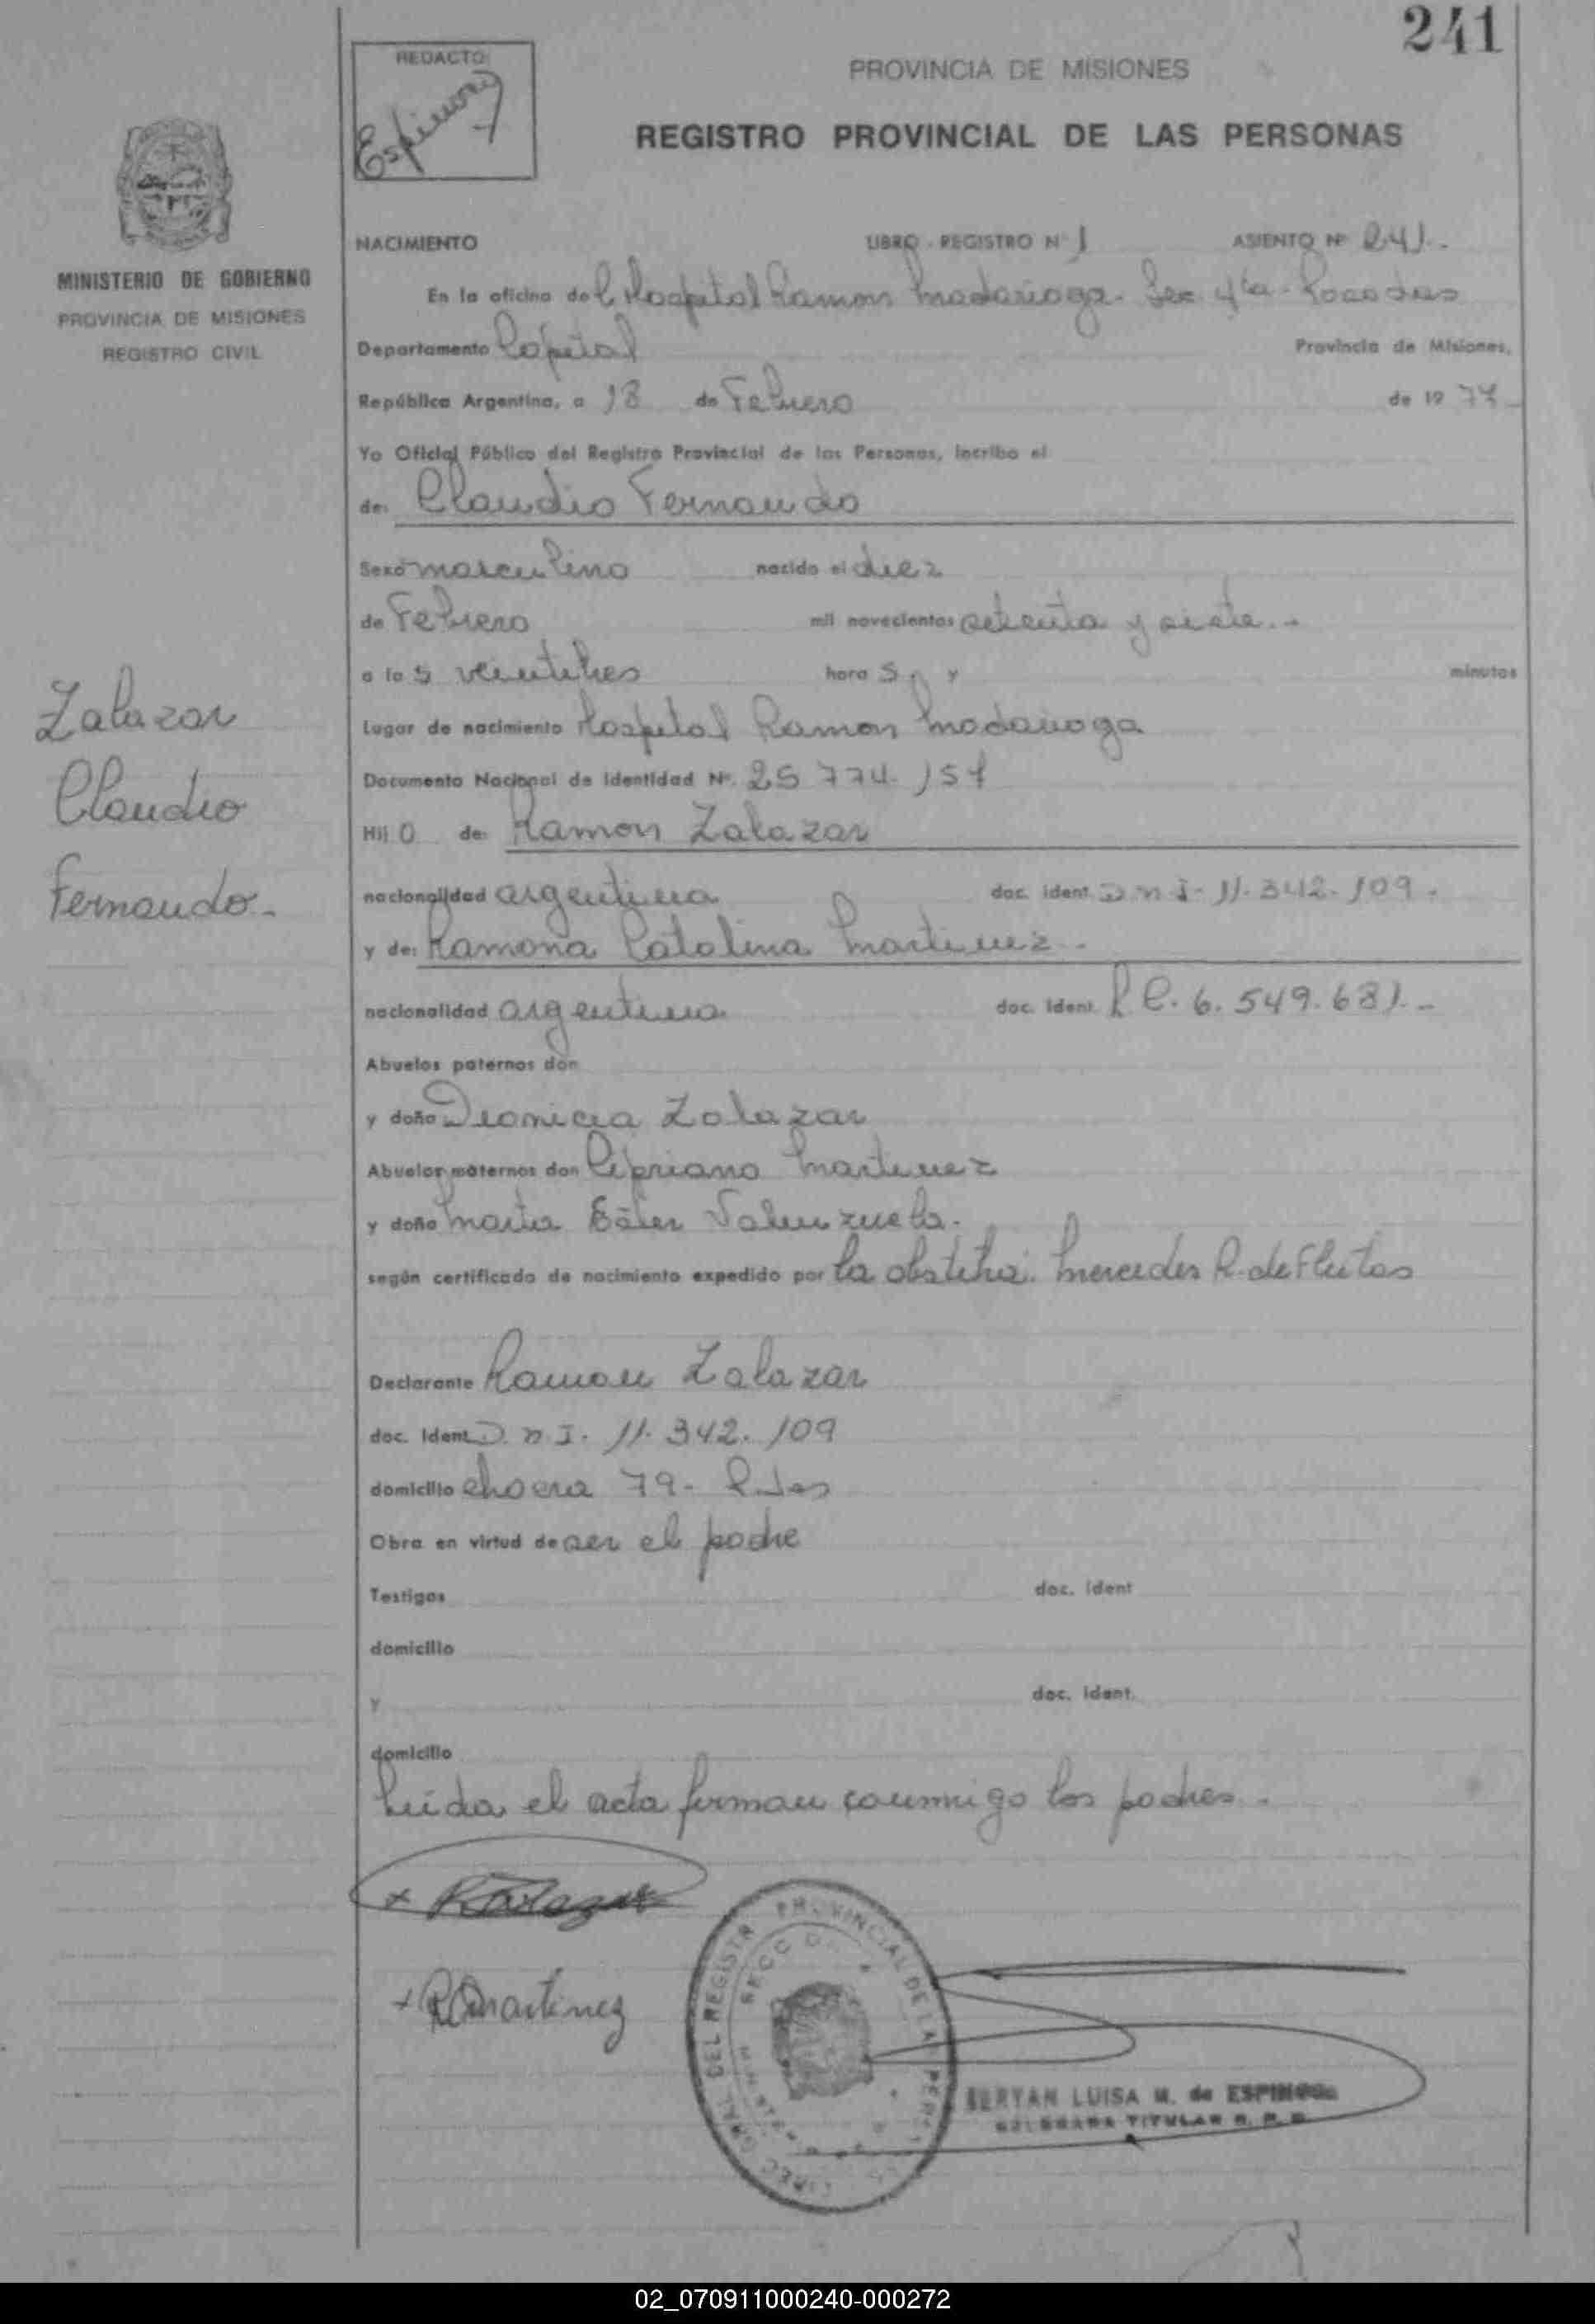 241
REDACTO:
Espinoza
PROVINCIA DE MISIONES
REGISTRO PROVINCIAL DE LAS PERSONAS
MINISTERIO DE GOBIERNO
PROVINCIA DE MISIONES
REGISTRO CIVIL
NACIMIENTO LIBRO - REGISTRO Nº 1 ASIENTO Nº 241.-
En la oficina del Hospital Ramon Madariaga - Sec 4ta - Posadas
Departamento Capital Provincia de Misiones,
República Argentina, a 18 de Febrero de 19 77
Yo Oficial Público del Registro Provincial de las Personas, incribo el
de: Claudio Fernando
Sexo masculino nacido el diez
de Febrero mil novecientos setenta y siete.-
a las veintitres horas y minutos
Lugar de nacimiento Hospital Ramon Madariaga
Documento Nacional de Identidad Nº. 25 774.
Hijo de: Ramon Zalazar
nacionalidad argentina doc. ident. D n I - 11.342.109.
y de: Ramona Catalina Martinez.-
nacionalidad argentina doc. ident. L C. 6.549.681.-
Abuelos paternos don
y doña Dionicia Zalazar
Abuelos maternos don Cipriano Martinez
y doña Maria Ester Valenzuela.
según certificado de nacimiento expedido por la obstetra. Mercedes R. de Fleitas
Zalazar
Claudio
Fernando.-
Declarante Ramon Zalazar
doc. ident. D. n I. 11.342.109
domicilio chacra 79-
Obra en virtud de ser el padre
Testigos doc. ident
domicilio
y doc. ident.
domicilio
Leida el acta firman conmigo los padres.-
x R Zalazar
+ RCMartinez
DIREC. GRAL. DEL REGISTR PROVINCIAL DE LA PERS
SECC
BERYAN LUISA M. de ESPINOZA
DELEGADA TITULAR R. P. P.
02_070911000240-000272